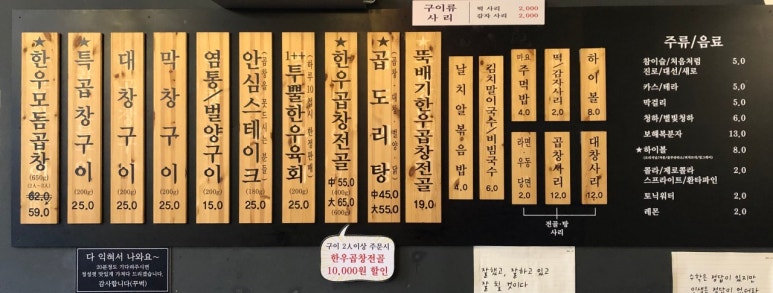 구이류 떡 사리 2,000
사리 감자 사리 2,000
★한우모듬곱창
(650g)
(2人~3人)
62.0
59.0
★특곱창구이
(200g)
25.0
대창구이
(200g)
25.0
막창구이
(200g)
25.0
염통/벌양구이
(200g)
15.0
안심스테이크
(곱창을 못드시는 분들)
(180g)
25.0
1++투뿔한우육회
(하루 10접시 한정판매)
(200g)
25.0
★한우곱창전골
中 55.0
(400g)
大 65.0
(600g)
★곱도리탕
(곱창·대창·벌양·닭)
中 45.0
大 55.0
★뚝배기한우곱창전골
19.0
날치알볶음밥
4.0
김치말이국수/비빔국수
6.0
마요주먹밥
4.0
떡/감자사리
2.0
하이볼
8.0
라면·우동·당면
2.0
곱창사리
12.0
대창사리
12.0
전골·탕
사리
주류/음료
참이슬/처음처럼
진로/대선/새로 5,0
카스/테라 5,0
막걸리 5,0
청하/별빛청하 6,0
보해복분자 13,0
★하이볼 8.0
콜라/제로콜라
스프라이트/환타파인 2,0
토닉워터 2,0
레몬 2,0
다 익혀서 나와요~
20분정도 기다려주시면
정성껏 맛있게 가져다 드리겠습니다.
감사합니다(꾸벅)
구이 2人이상 주문시
한우곱창전골
10,000원 할인
잘했고, 잘하고 있고
잘 될 것이다
수학은 정답이 있지만
인생은 정답이 없더라